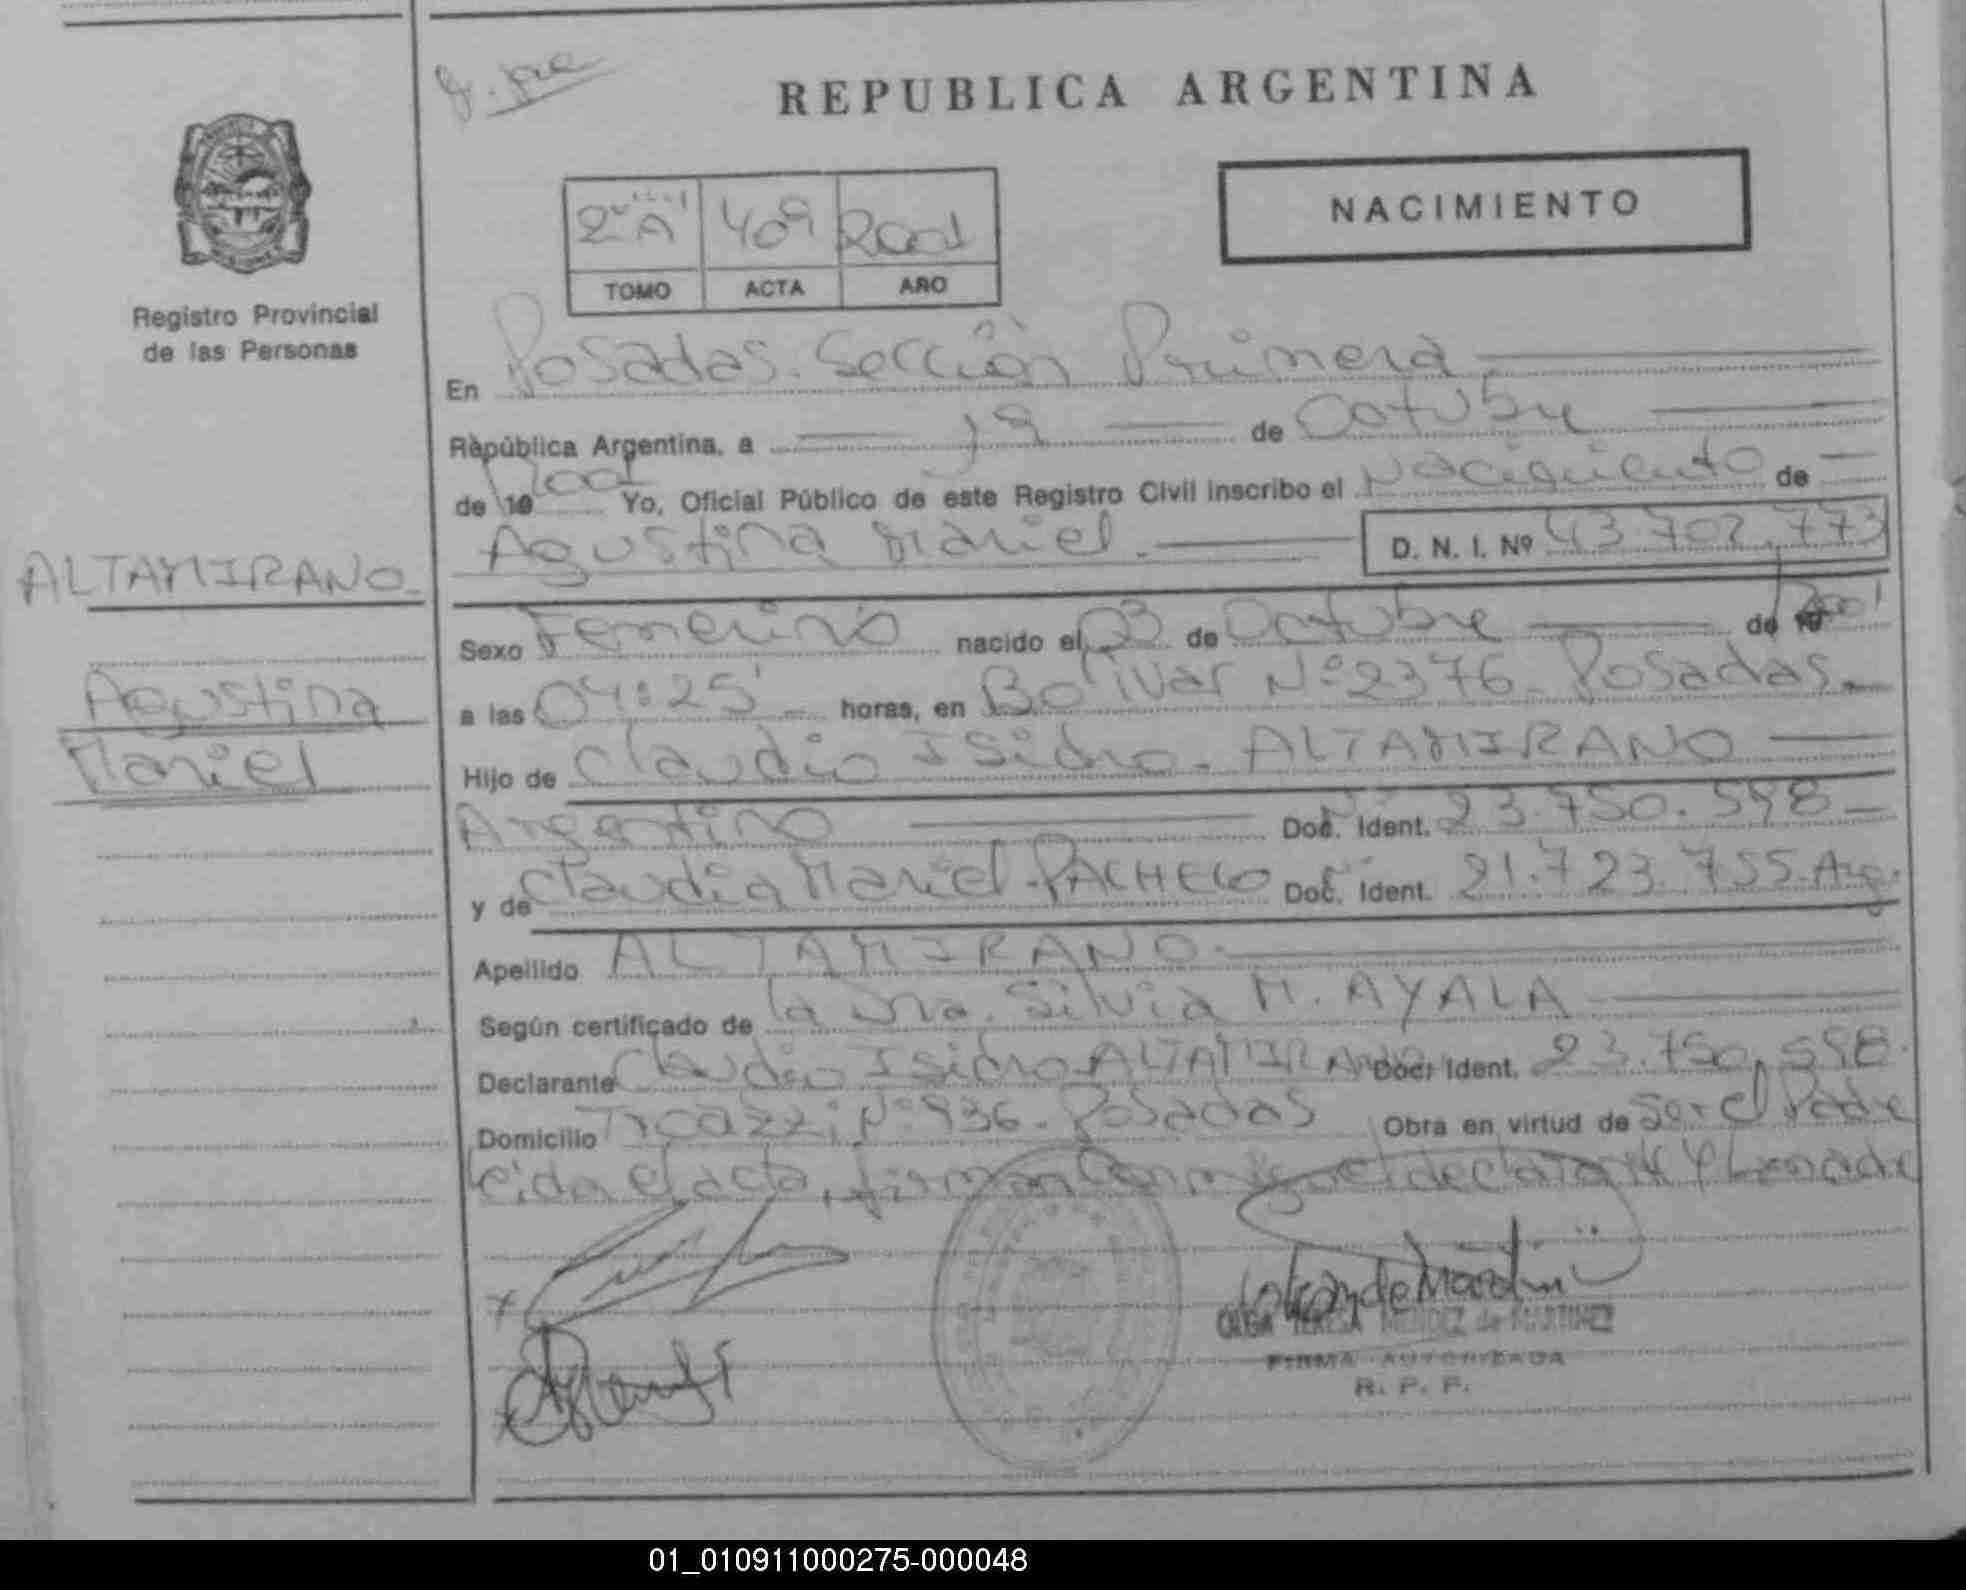 REPUBLICA ARGENTINA
NACIMIENTO
2º A 409 2001
TOMO ACTA AÑO
Registro Provincial
de las Personas
En Posadas. Sección Primera
República Argentina, a 19 de Octubre
de 19 2001 Yo, Oficial Público de este Registro Civil inscribo el Nacimiento de
Agustina Mariel. D. N. I. Nº 43.702.773
ALTAMIRANO.
Agustina
Mariel
Sexo Femenino nacido el 03 de Octubre de 19 2001
a las 04:25' horas, en Bolivar Nº 2376. Posadas.
Hijo de Claudio Isidro. ALTAMIRANO
Argentino Doc. Ident. Nº 23.750.598
y de Claudia Mariel. PACHECO Doc. Ident. Nº 21.723.755. Arg.
Apellido ALTAMIRANO.
Según certificado de la Dra. Silvia M. AYALA
Declarante Claudio Isidro ALTAMIRANO Doc. Ident. 23.750.598.
Domicilio Nº 936. Posadas Obra en virtud de Ser el Padre
Leida el acta, firman Conmigo el declarante y la madre
OLGA TERESA MENDEZ de MARTINEZ
FIRMA AUTORIZADA
R. P. P.
01_010911000275-000048